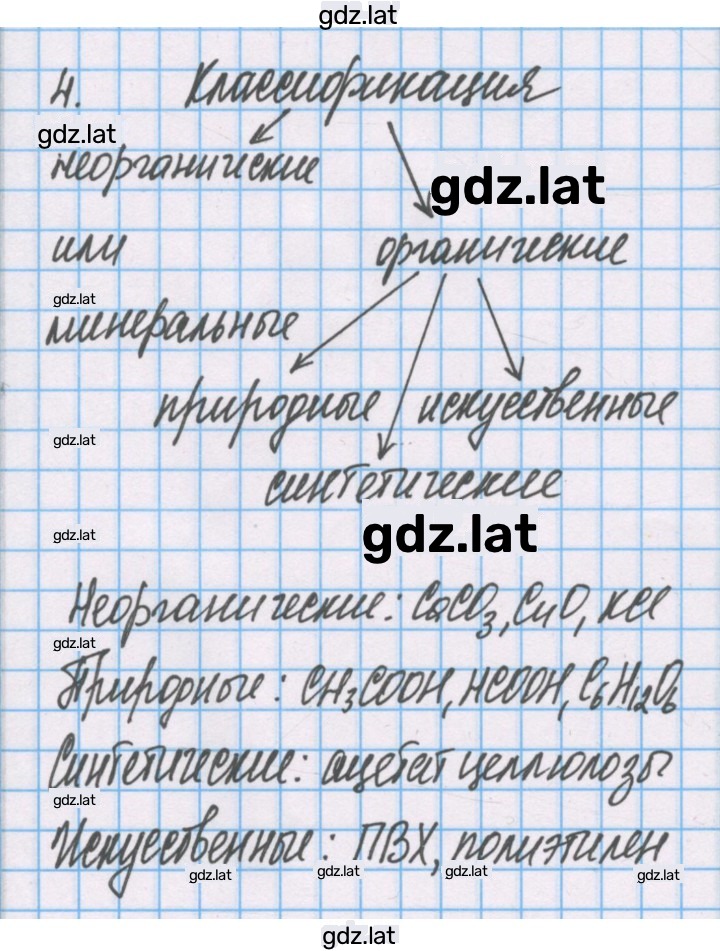 gdz.lat
4. Классификация
gdz.lat
неорганические
gdz.lat
или органические
gdz.lat
минеральные
природные искусственные
gdz.lat
синтетические
gdz.lat
gdz.lat
Неорганические: CaCO3, CuO, KCl
gdz.lat
Природные: CH3COOH, HCOOH, C6H12O6
Синтетические: ацетат целлюлозы
gdz.lat
Искусственные: ПВХ, полиэтилен
gdz.lat gdz.lat gdz.lat gdz.lat
gdz.lat